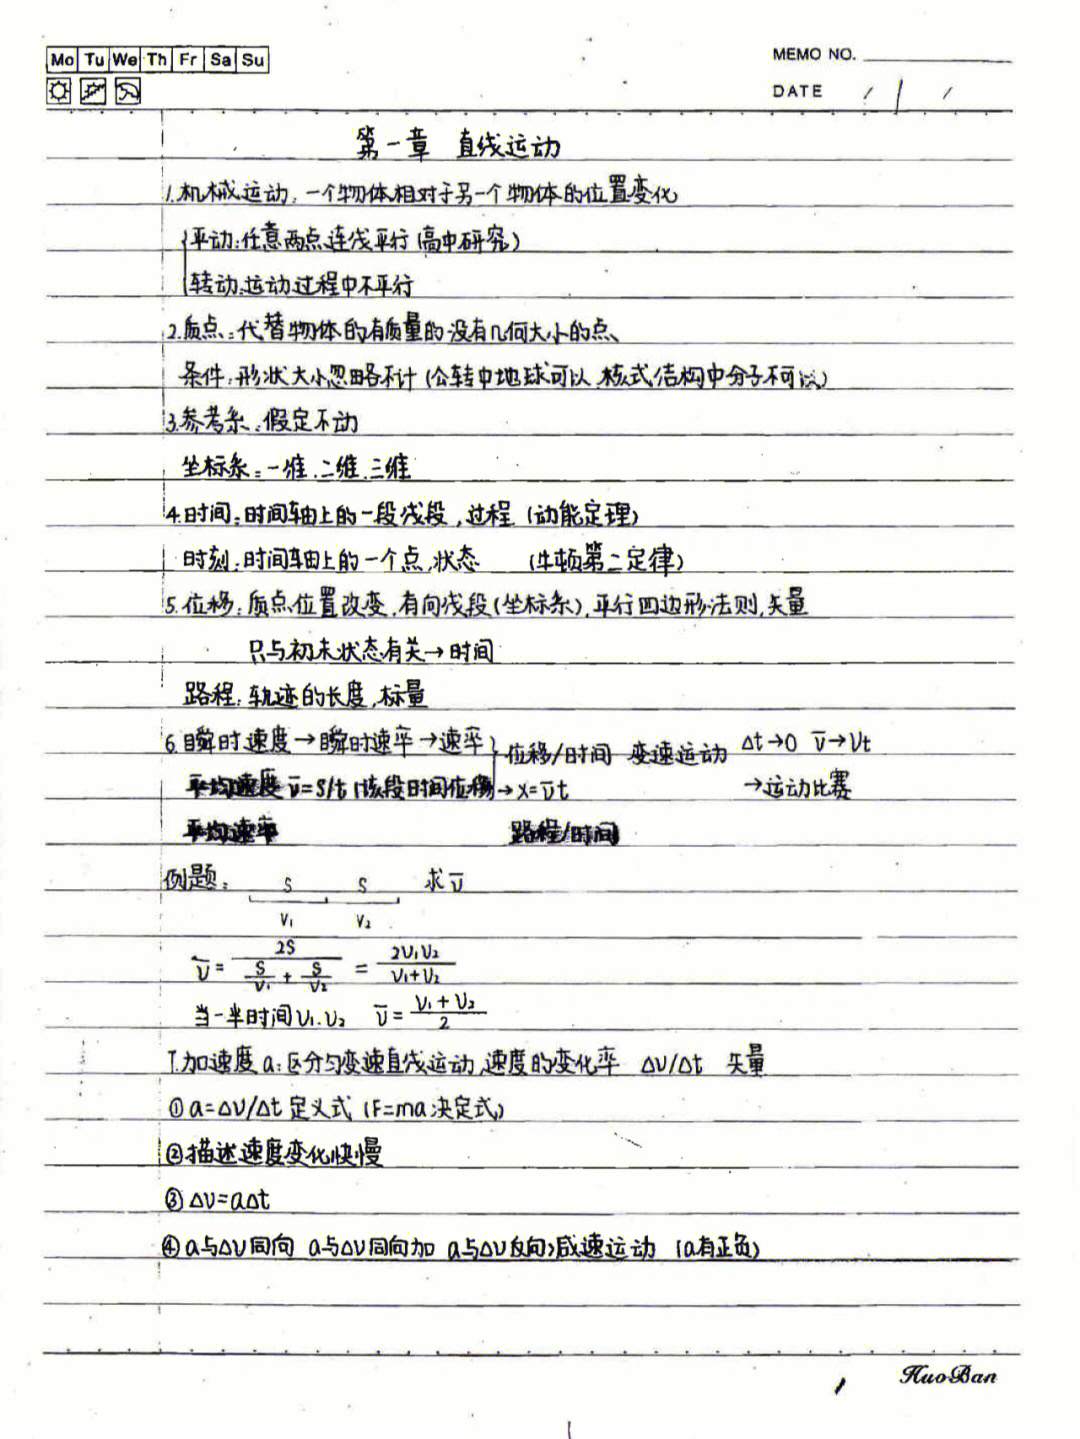 Mo Tu We Th Fr Sa Su
MEMO NO.
DATE / / /
第一章 直线运动
1.机械运动:一个物体相对于另一个物体的位置变化
平动:任意两点连线平行(高中研究)
转动:运动过程中不平行
2.质点:代替物体的有质量的没有几何大小的点、
条件:形状大小忽略不计(公转中地球可以,核式结构中分子不可以)
3.参考系:假定不动
坐标系:一维.二维.三维
4.时间:时间轴上的一段线段,过程(动能定理)
时刻:时间轴上的一个点,状态 (牛顿第二定律)
5.位移:质点位置改变,有向线段(坐标系),平行四边形法则,矢量
只与初末状态有关→时间
路程:轨迹的长度,标量
6.瞬时速度→瞬时速率→速率} 位移/时间 变速运动 Δt→0 v̄→Vt
平均速度 v̄=S/t (该段时间位移 →x=v̄t →运动比赛
平均速率 路程/时间
例题: S S 求v̄
V₁ V₂
v̄ = 2S/(S/V₁ + S/V₂) = 2V₁V₂/(V₁+V₂)
当一半时间V₁.V₂ v̄ = (V₁+V₂)/2
7.加速度a:区分匀变速直线运动,速度的变化率 ΔV/Δt 矢量
①a=ΔV/Δt 定义式(F=ma决定式)
②描述速度变化快慢
③ΔV=aΔt
④a与ΔV同向 a与ΔV同向加 a与ΔV反向)减速运动 (a有正负)
1
HuoBan